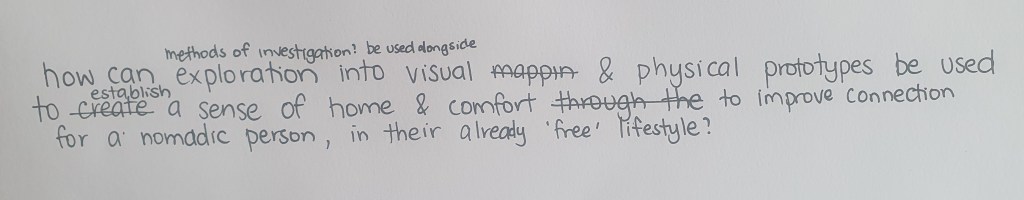 methods of investigation? be used alongside
how can exploration into visual mappin & physical prototypes be used
establish
to create a sense of home & comfort through the to improve connection
for a nomadic person, in their already 'free' lifestyle?